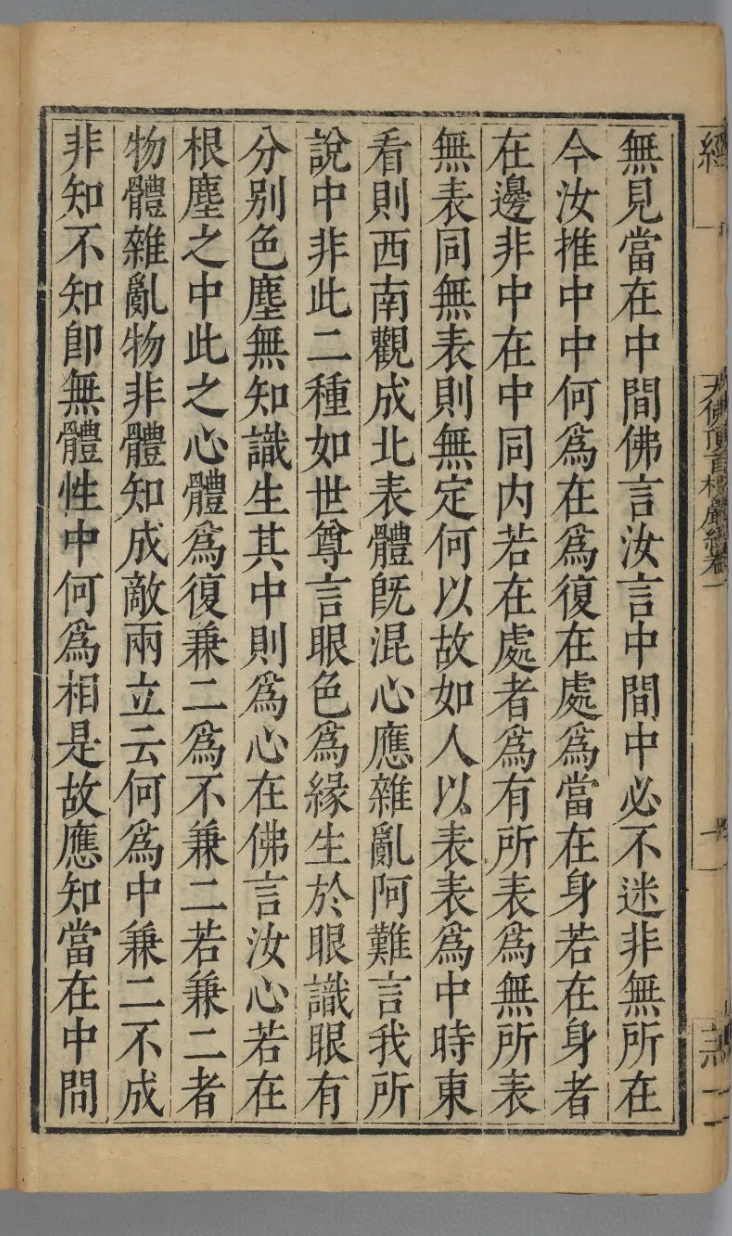 無見當在中間佛言汝言中間中必不迷非無所在
今汝推中中何爲在爲復在處爲當在身若在身者
在邊非中在中同内若在處者爲有所表爲無所表
無表同無表則無定何以故如人以表表爲中時東
看則西南觀成北表體旣混心應雜亂阿難言我所
說中非此二種如世尊言眼色爲緣生於眼識眼有
分别色塵無知識生其中則爲心在佛言汝心若在
根塵之中此之心體爲復兼二爲不兼二若兼二者
物體雜亂物非體知成敵兩立云何爲中兼二不成
非知不知卽無體性中何爲相是故應知當在中間
經一
大佛頂首楞嚴經卷一